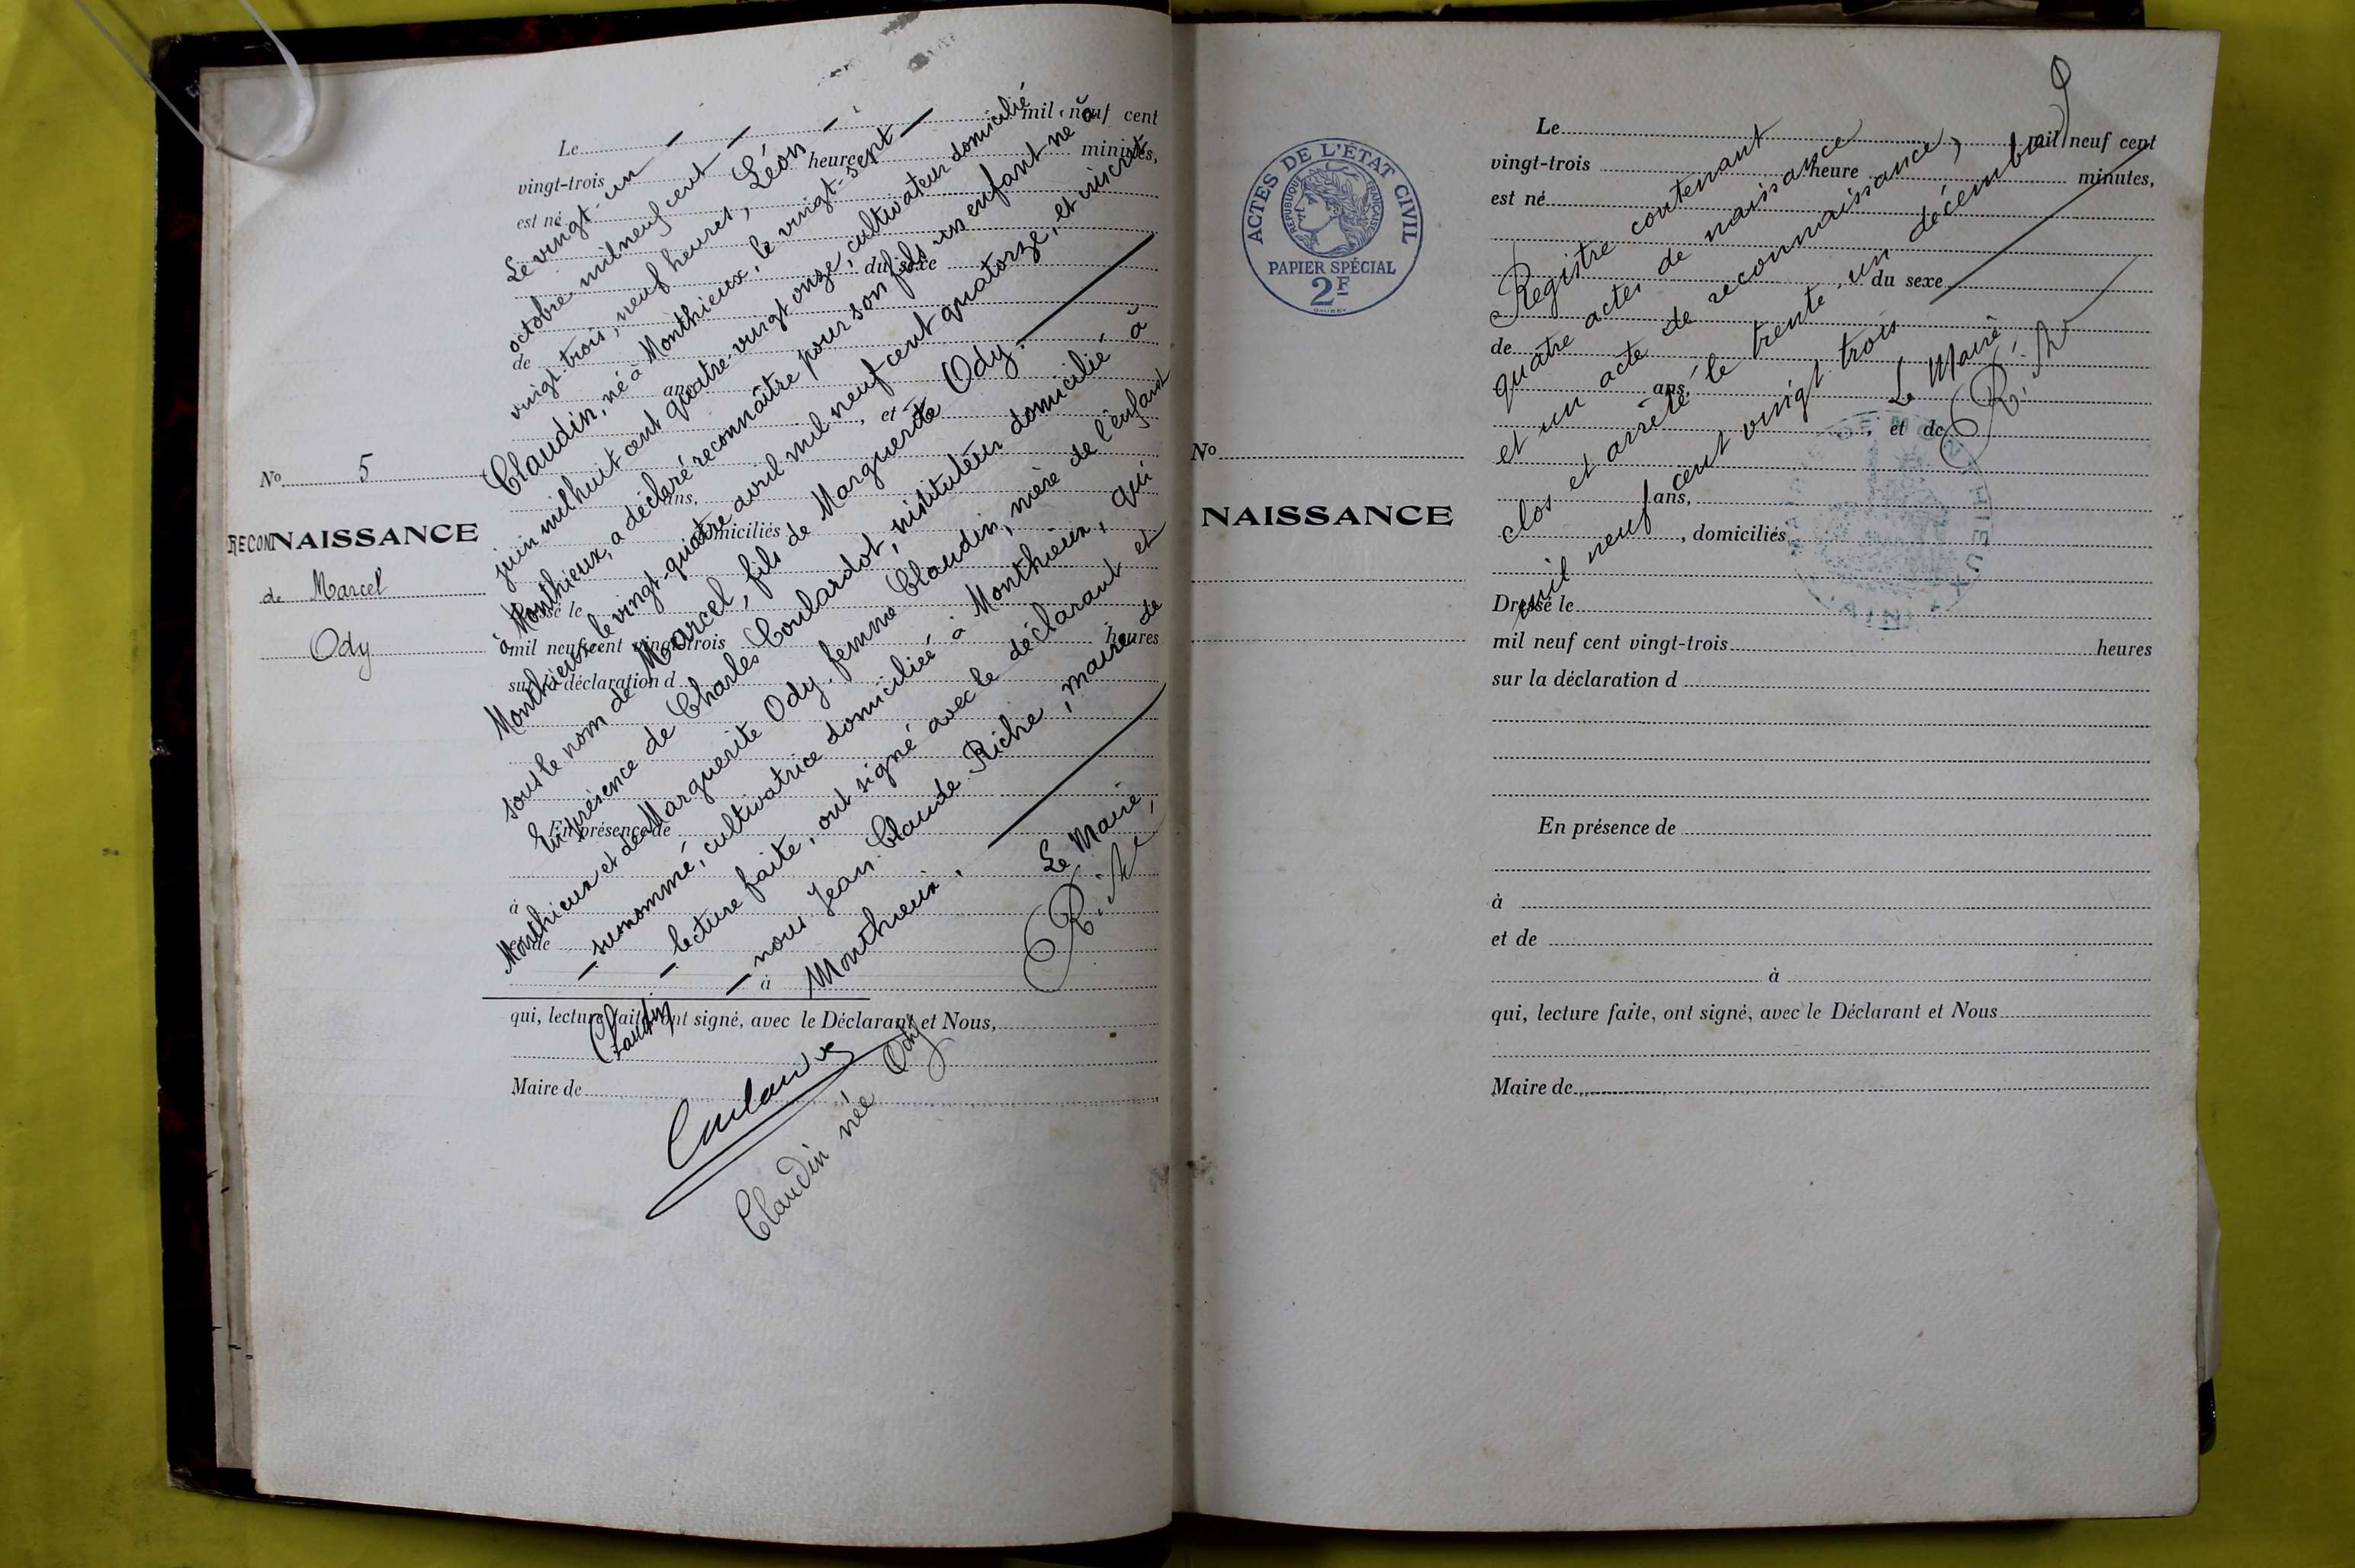 Le mil neuf cent
vingt-trois heure minutes,
est né
du sexe
de
ans
, et de
ans,
domiciliés
Dressé le
mil neuf cent vingt-trois heures
sur la déclaration d
En présence de
à
et de
à
qui, lecture faite, ont signé, avec le Déclarant et Nous,
Maire de
No 5
RECONNAISSANCE
de Marcel
Ody
Le vingt-un
octobre mil neuf cent
vingt-trois, neuf heures, Léon
Claudin, né à Monthieux, le vingt-sept
juin mil huit cent quatre-vingt onze, cultivateur domicilié
à Monthieux, a déclaré reconnaître pour son fils un enfant né à
Monthieux le vingt-quatre avril mil neuf cent quatorze, et inscrit
sous le nom de Marcel, fils de Marguerite Ody.
En présence de Charles Coulardot, instituteur domicilié à
Monthieux et de Marguerite Ody femme Claudin, mère de l'enfant
susnommé, cultivatrice domiciliée à Monthieux, qui
lecture faite, ont signé avec le déclarant et
nous Jean Claude Riche, maire de
Monthieux.
Le Maire,
Riche
Claudin
Claudin née Ody
ACTES DE L'ÉTAT CIVIL
RÉPUBLIQUE FRANÇAISE
PAPIER SPÉCIAL
2F
No
NAISSANCE
Le mil neuf cent
vingt-trois heure minutes,
est né
du sexe
de
ans,
, et de
ans,
, domiciliés
Dressé le
mil neuf cent vingt-trois heures
sur la déclaration d
En présence de
à
et de
à
qui, lecture faite, ont signé, avec le Déclarant et Nous
Maire de
Registre contenant
quatre actes de naissance
et un acte de reconnaissance,
clos et arrêté le trente un décembre
mil neuf cent vingt trois
Le Maire
Riche